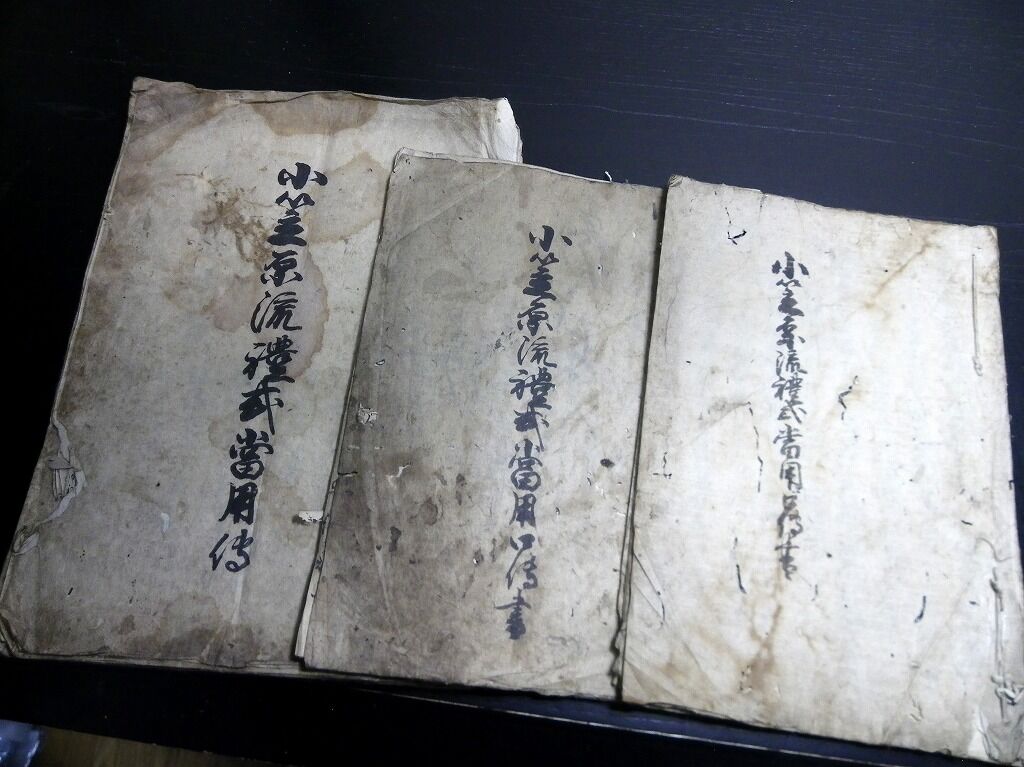 小笠原流禮式當用傳
小笠原流禮式當用口傳書
小笠原流禮式當用口傳書